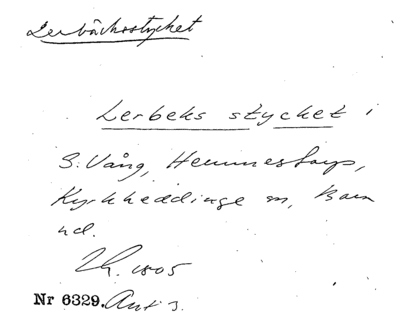 Lerbäcksstycket
Lerbeks stycket i
S. Vång, Hemmestorps,
Kyrkheddinge m, Bara
hd.
Lh. 1805
Nr 6329. Ant 3.